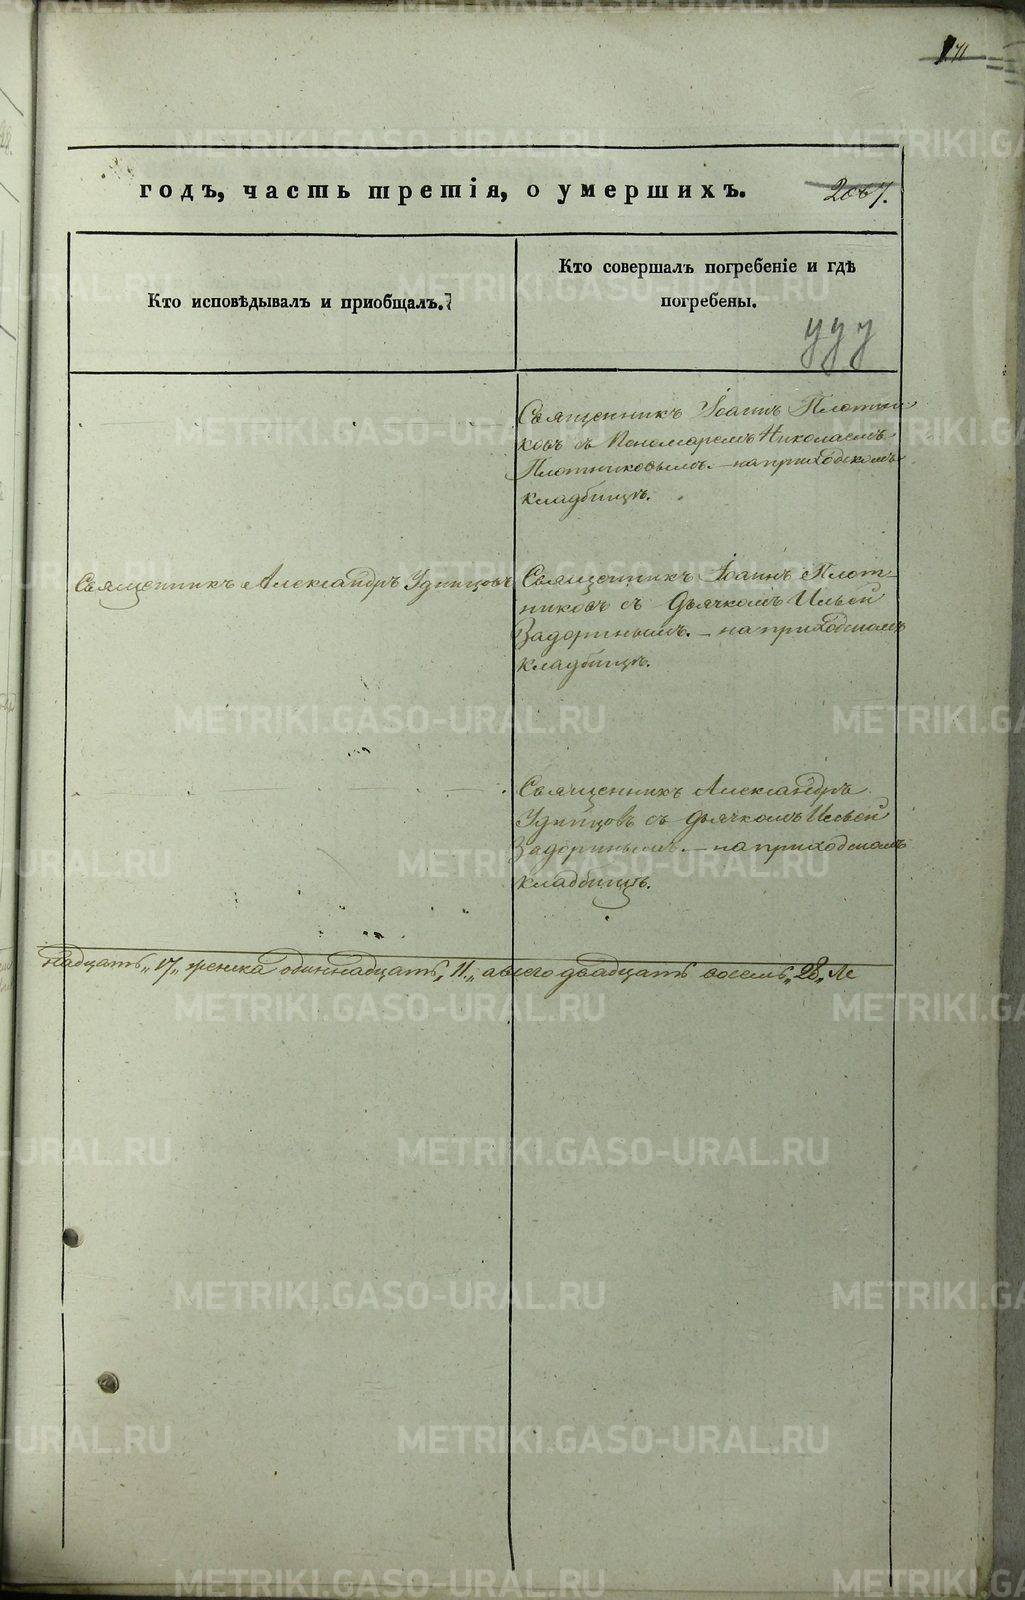 годъ, часть третія, о умершихъ.
Кто исповѣдывалъ и приобщалъ.
Кто совершалъ погребеніе и гдѣ
погребены.
Священникъ Іоаннъ Плотни
ковъ съ Пономаремъ Николаемъ
Плотниковымъ. – на приходскомъ
кладбищѣ.
Священникъ Александръ Удинцовъ
Священникъ Іоаннъ Плот-
никовъ съ Дьячкомъ Ильей
Задоринымъ. – на приходскомъ
кладбищѣ.
Священникъ Александръ
Удинцовъ съ Дьячкомъ Ильей
Задоринымъ. – на приходскомъ
кладбищѣ.
надцать „17„ женска одиннадцать „11„ а всего двадцать восемь „28„
METRIKI.GASO-URAL.RU